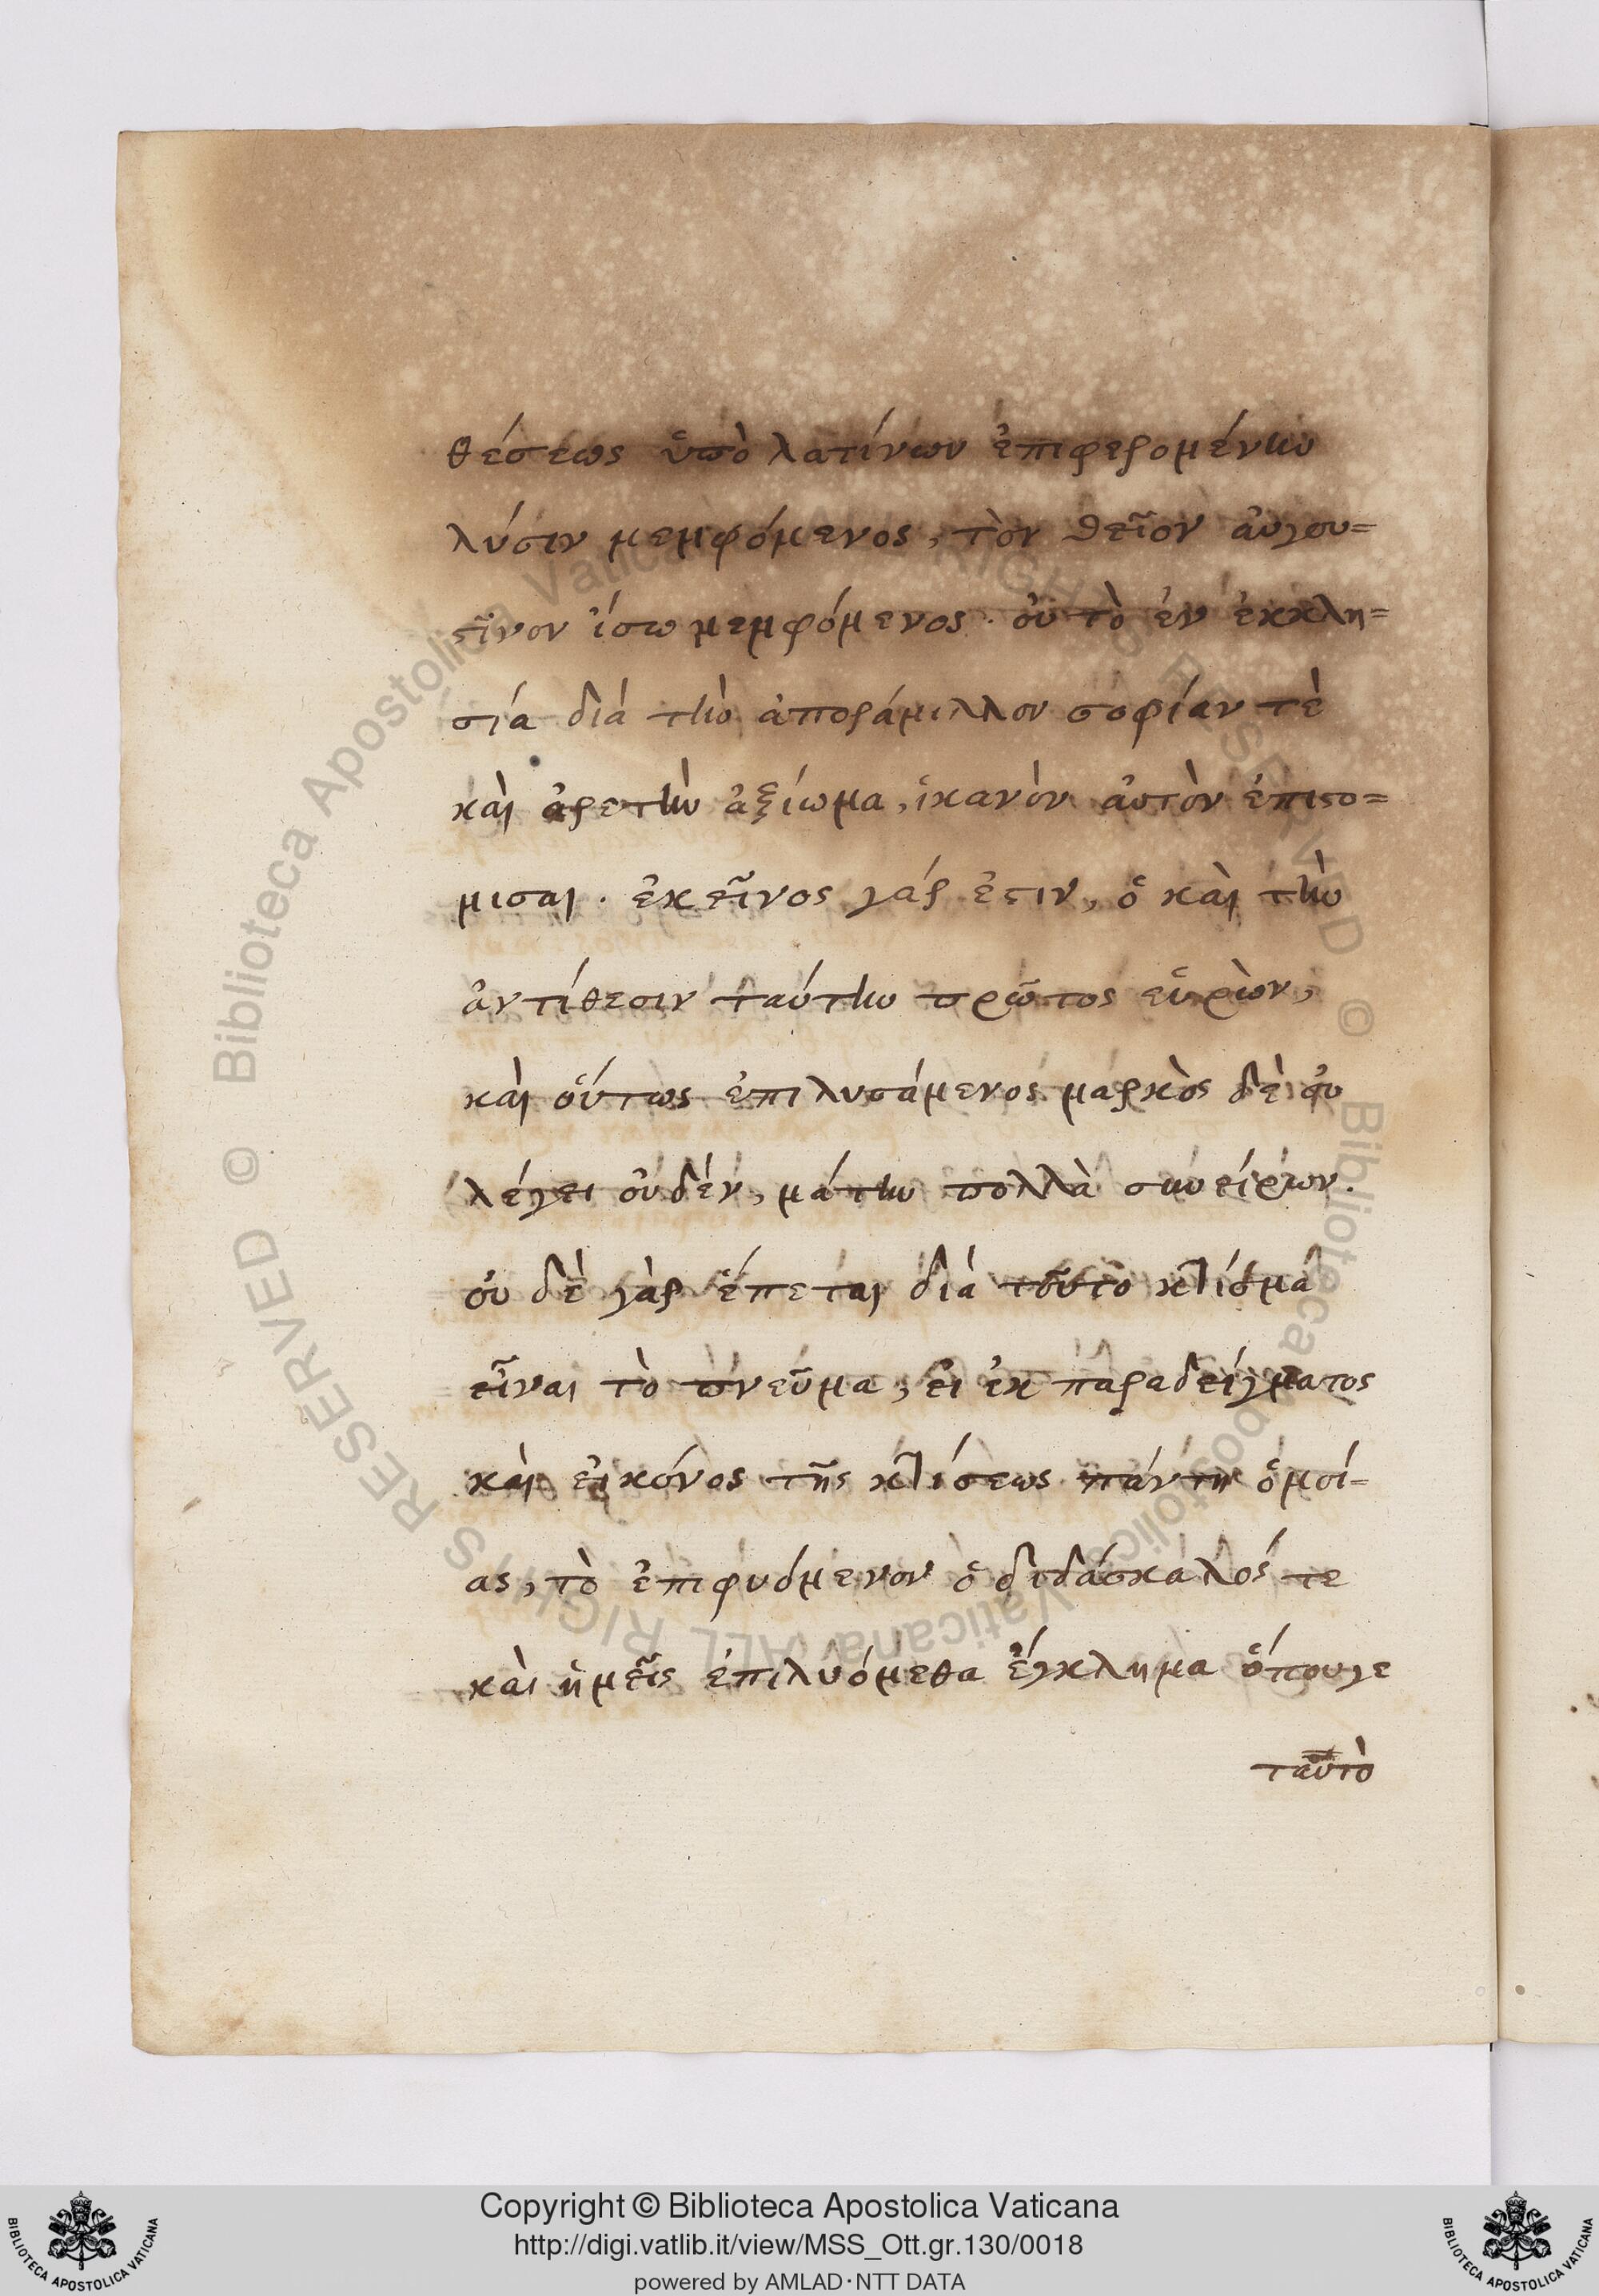 θέσεως ὑπὸ λατίνων ἐπιφερομένην
λύσιν μεμφόμενος, τὸν θεῖον αὐγου=
στῖνον ἴστω μεμφόμενος. οὗ τὸ ἐν ἐκκλη=
σία διὰ τὴν ἀπαράμιλλον σοφίαν τὲ
καὶ ἀρετὴν ἀξίωμα, ἱκανὸν αὐτὸν ἐπιστο=
μισαι. ἐκεῖνος γάρ ἐστιν, ὁ καὶ τὴν
ἀντίθεσιν ταύτην πρῶτος εὑρὼν,
καὶ οὕτως ἐπιλυσάμενος μαρκὸς δὲ οὐ
λέγει οὐδέν, μάτην πολλὰ συνείρων.
οὐ δὲ γὰρ ἕπεται διὰ τοῦτο κτίσμα
εἶναι τὸ πνεῦμα, εἰ ἐκ παραδείγματος
καὶ εἰκόνος τῆς κτίσεως πάντη ὁμοί=
ας, τὸ ἐπιφυόμενον ὁ διδάσκαλός τε
καὶ ἡμεῖς ἐπιλυόμεθα ἔγκλημα ὅπουγε
ταὐτὸ
Copyright © Biblioteca Apostolica Vaticana
http://digi.vatlib.it/view/MSS_Ott.gr.130/0018
powered by AMLAD·NTT DATA
BIBLIOTECA APOSTOLICA VATICANA
BIBLIOTECA APOSTOLICA VATICANA
© Biblioteca Apostolica Vaticana ALL RIGHTS RESERVED © Biblioteca Apostolica Vaticana ALL RIGHTS RESERVED